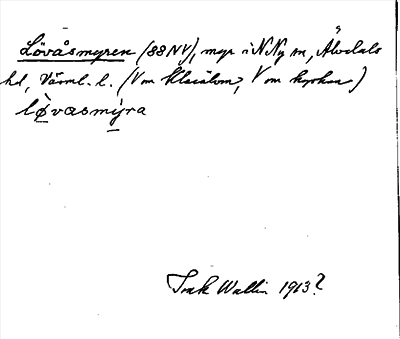 Lövåsmyren (88NV), myr i N Ny sn, Älvdals
hd, Värml. l. (V om Klarälven, V om kyrkan)
løvasmýra
Wallin 1913?